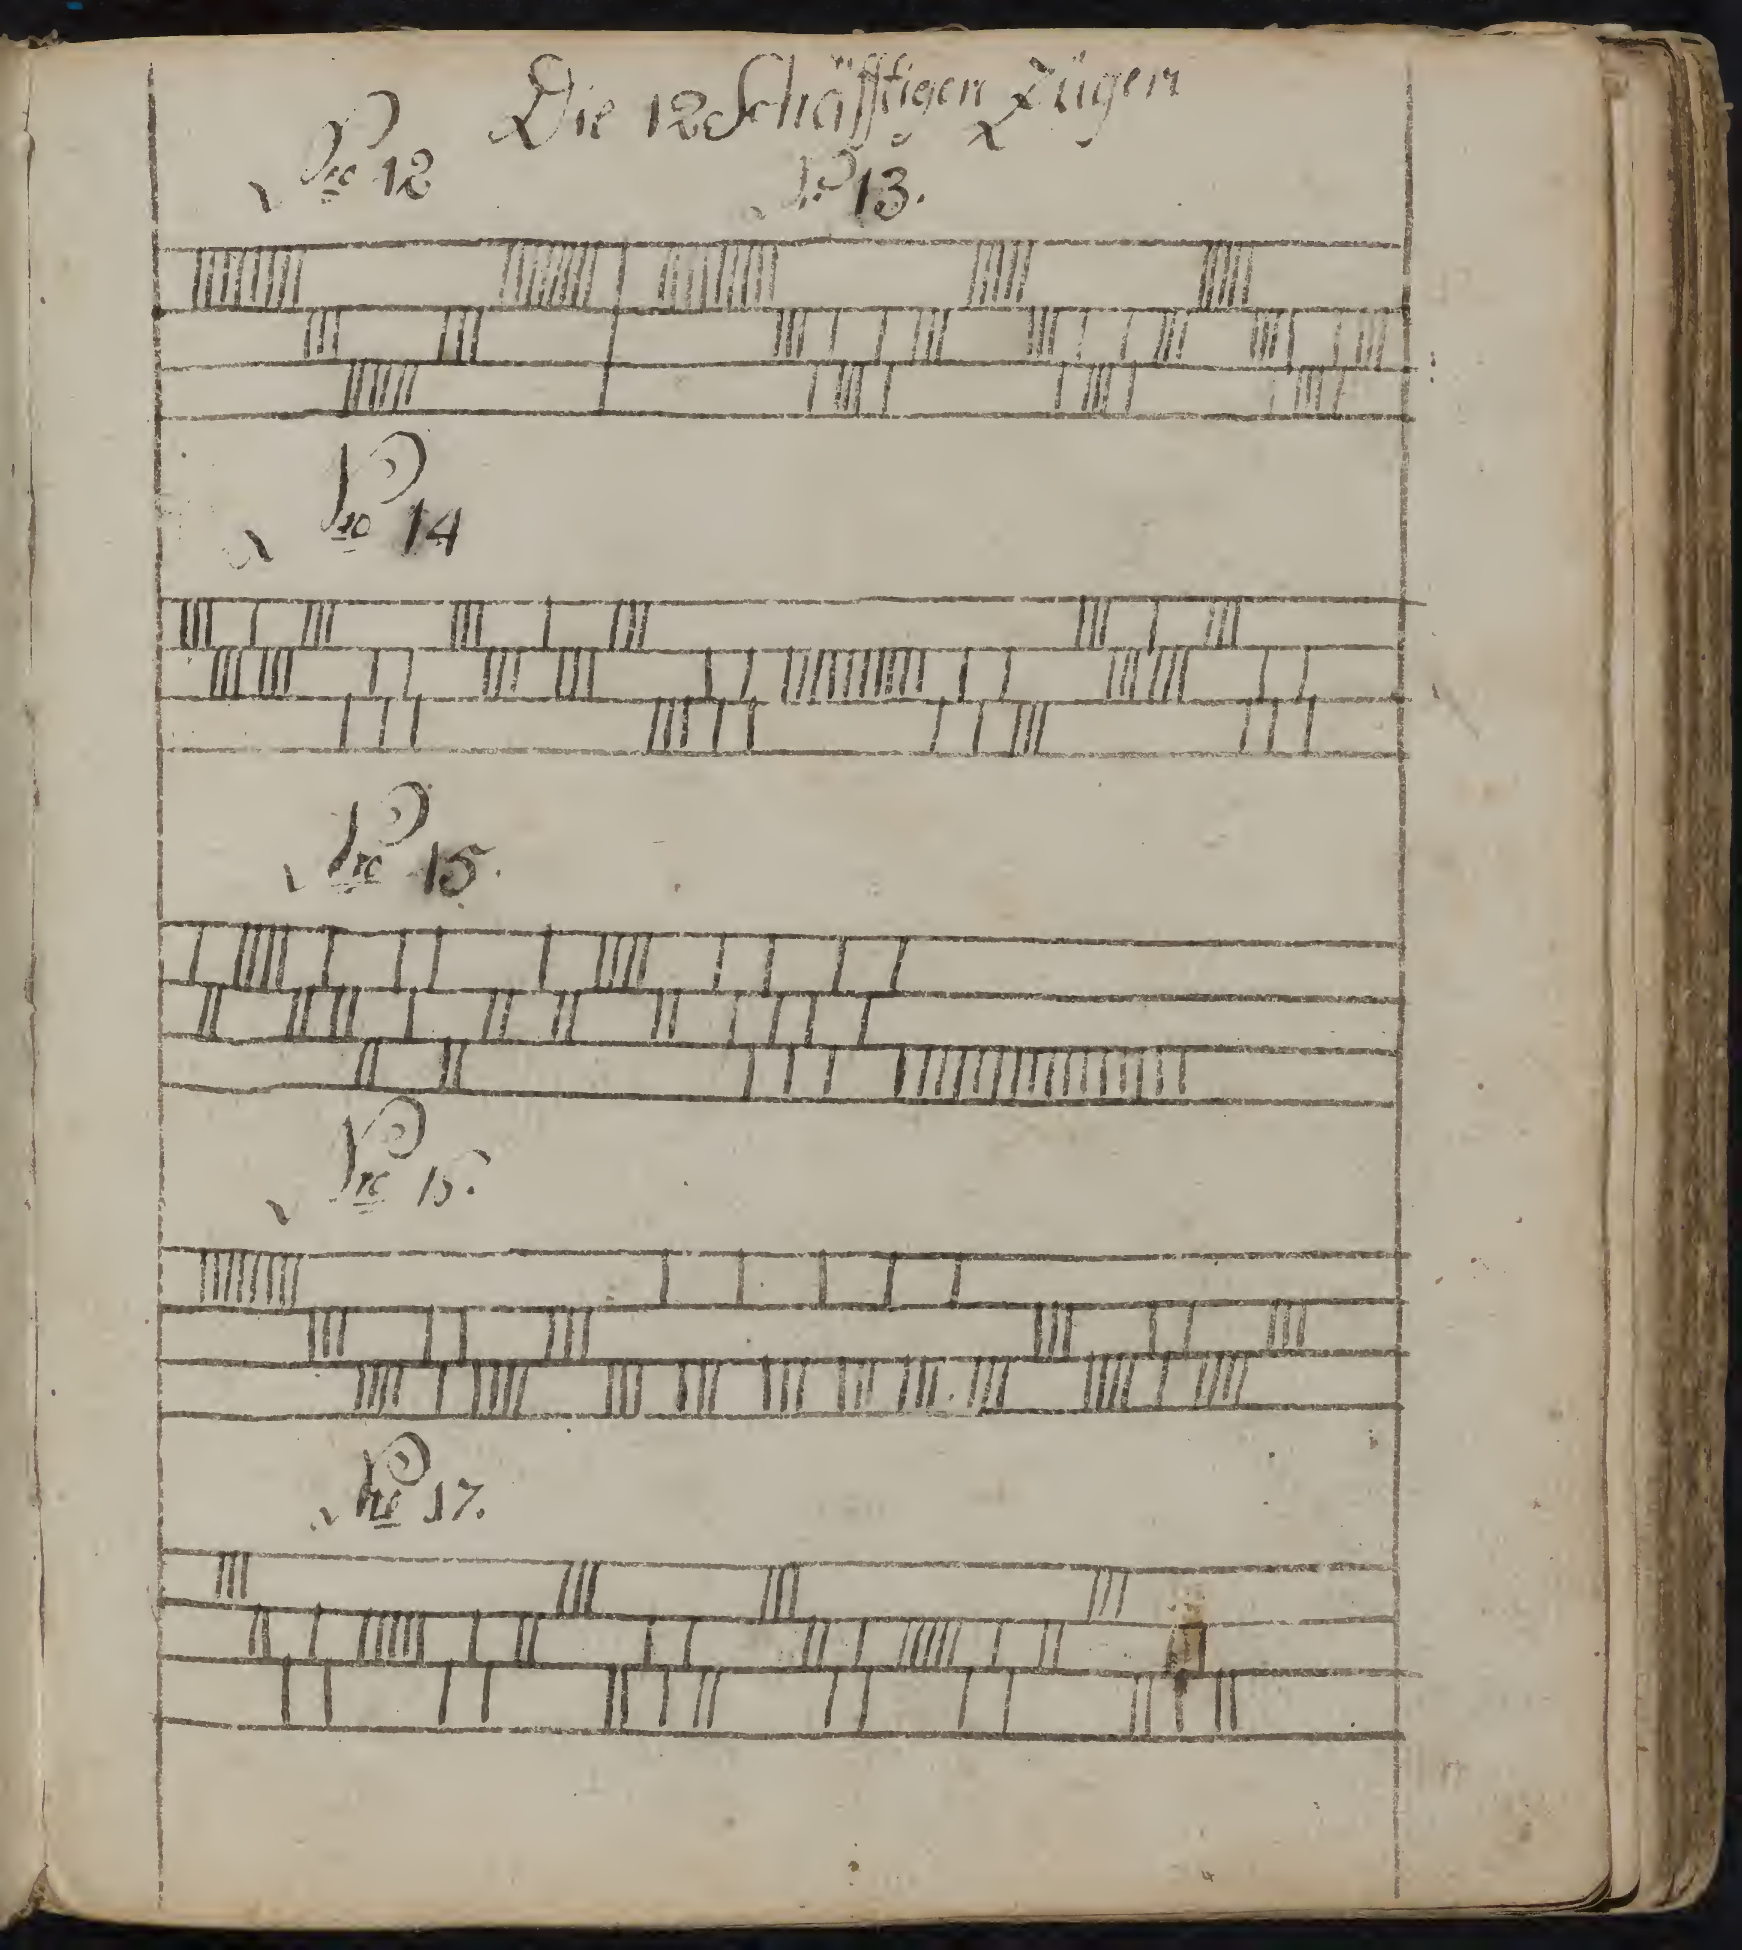 Die 12 Schäfftigen Zügen
No 12
No 13.
No 14
No 15.
No 15.
No 17.